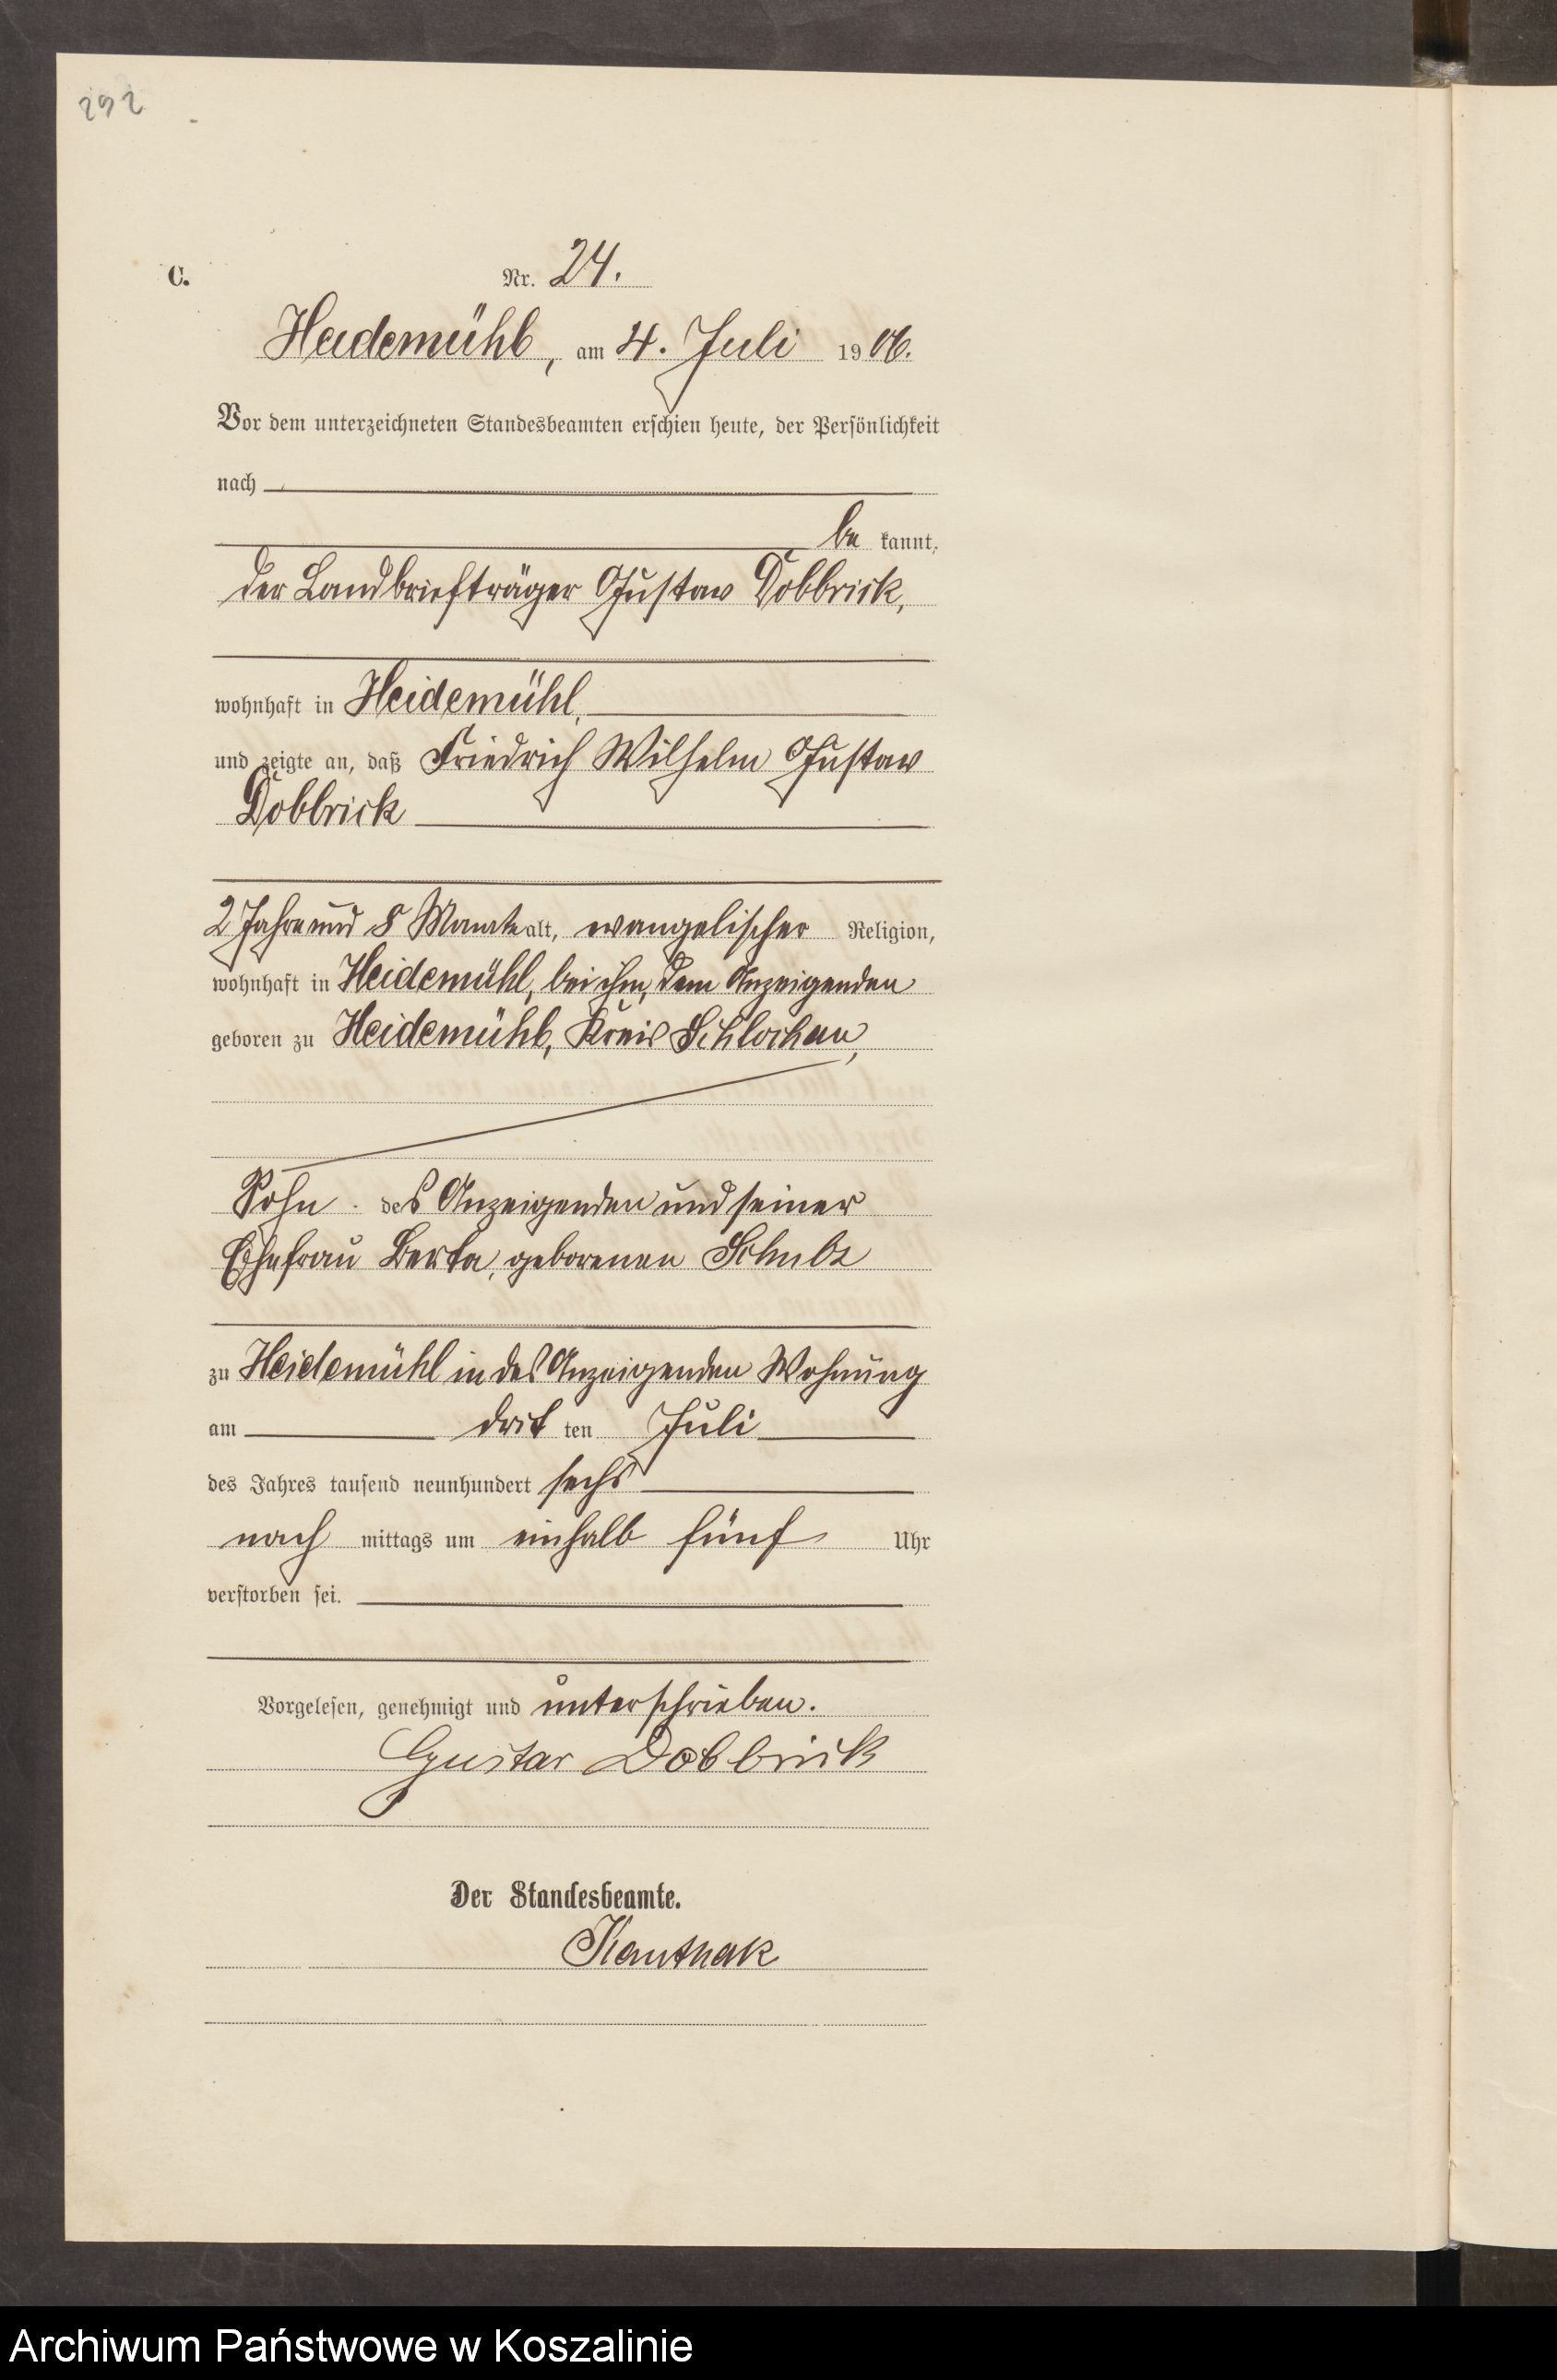 292
C.
Nr. 24.
Heidemühl, am 4. Juli 1906.
Vor dem unterzeichneten Standesbeamten erschien heute, der Persönlichkeit
nach
be kannt,
der Landbriefträger Gustav Dobbrick,
wohnhaft in Heidemühl,
und zeigte an, daß Friedrich Wilhelm Gustav
Dobbrick
2 Jahre und 8 Monate alt, evangelischer Religion,
wohnhaft in Heidemühl, bei ihm, dem Anzeigenden
geboren zu Heidemühl, Kreis Schlochau,
Sohn des Anzeigenden und seiner
Ehefrau Berta, geborenen Schulz
zu Heidemühl in des Anzeigenden Wohnung
am drit ten Juli
des Jahres tausend neunhundert sechs
nach mittags um einhalb fünf Uhr
verstorben sei.
Vorgelesen, genehmigt und unterschrieben.
Gustav Dobbrick
Der Standesbeamte.
Kauthak
Archiwum Państwowe w Koszalinie